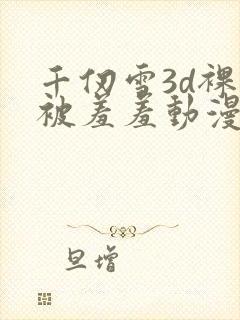 千仞雪3d裸
被羞羞動漫
旦增